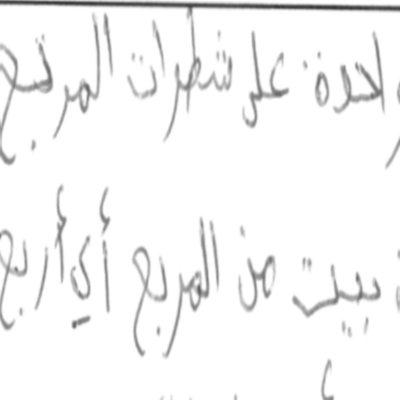 واحدة على شطرات المربع
بيت من المربع أي أربع